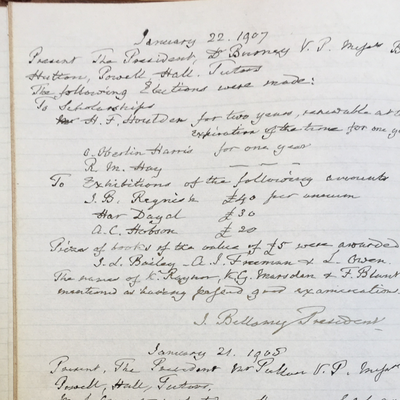 January 22. 1907
Present The President, Dr Burney V. P. Messrs
Hutton, Powell, Hall. Tutors
The following Elections were made:
To Scholarships
H. F. Houlden for two years, renewable at the
expiration of the time for one
Oberlin Harris for one year
R. M. Hay
To Exhibitions of the following amounts
I. B. £40 per annum
Har Dayal £30
A. C. Hobson £20
Prizes of books of the value of £5 were awarded
J. L. Bailey - A. J. Freeman & L. Owen
The names of K. G. Marsden & F. Blunt
mentioned as having passed good examinations.
J. Bellamy President
January 21. 1908
Present, The President Mr Pullan V. P. Messrs
Powell, Hall, Tutors,